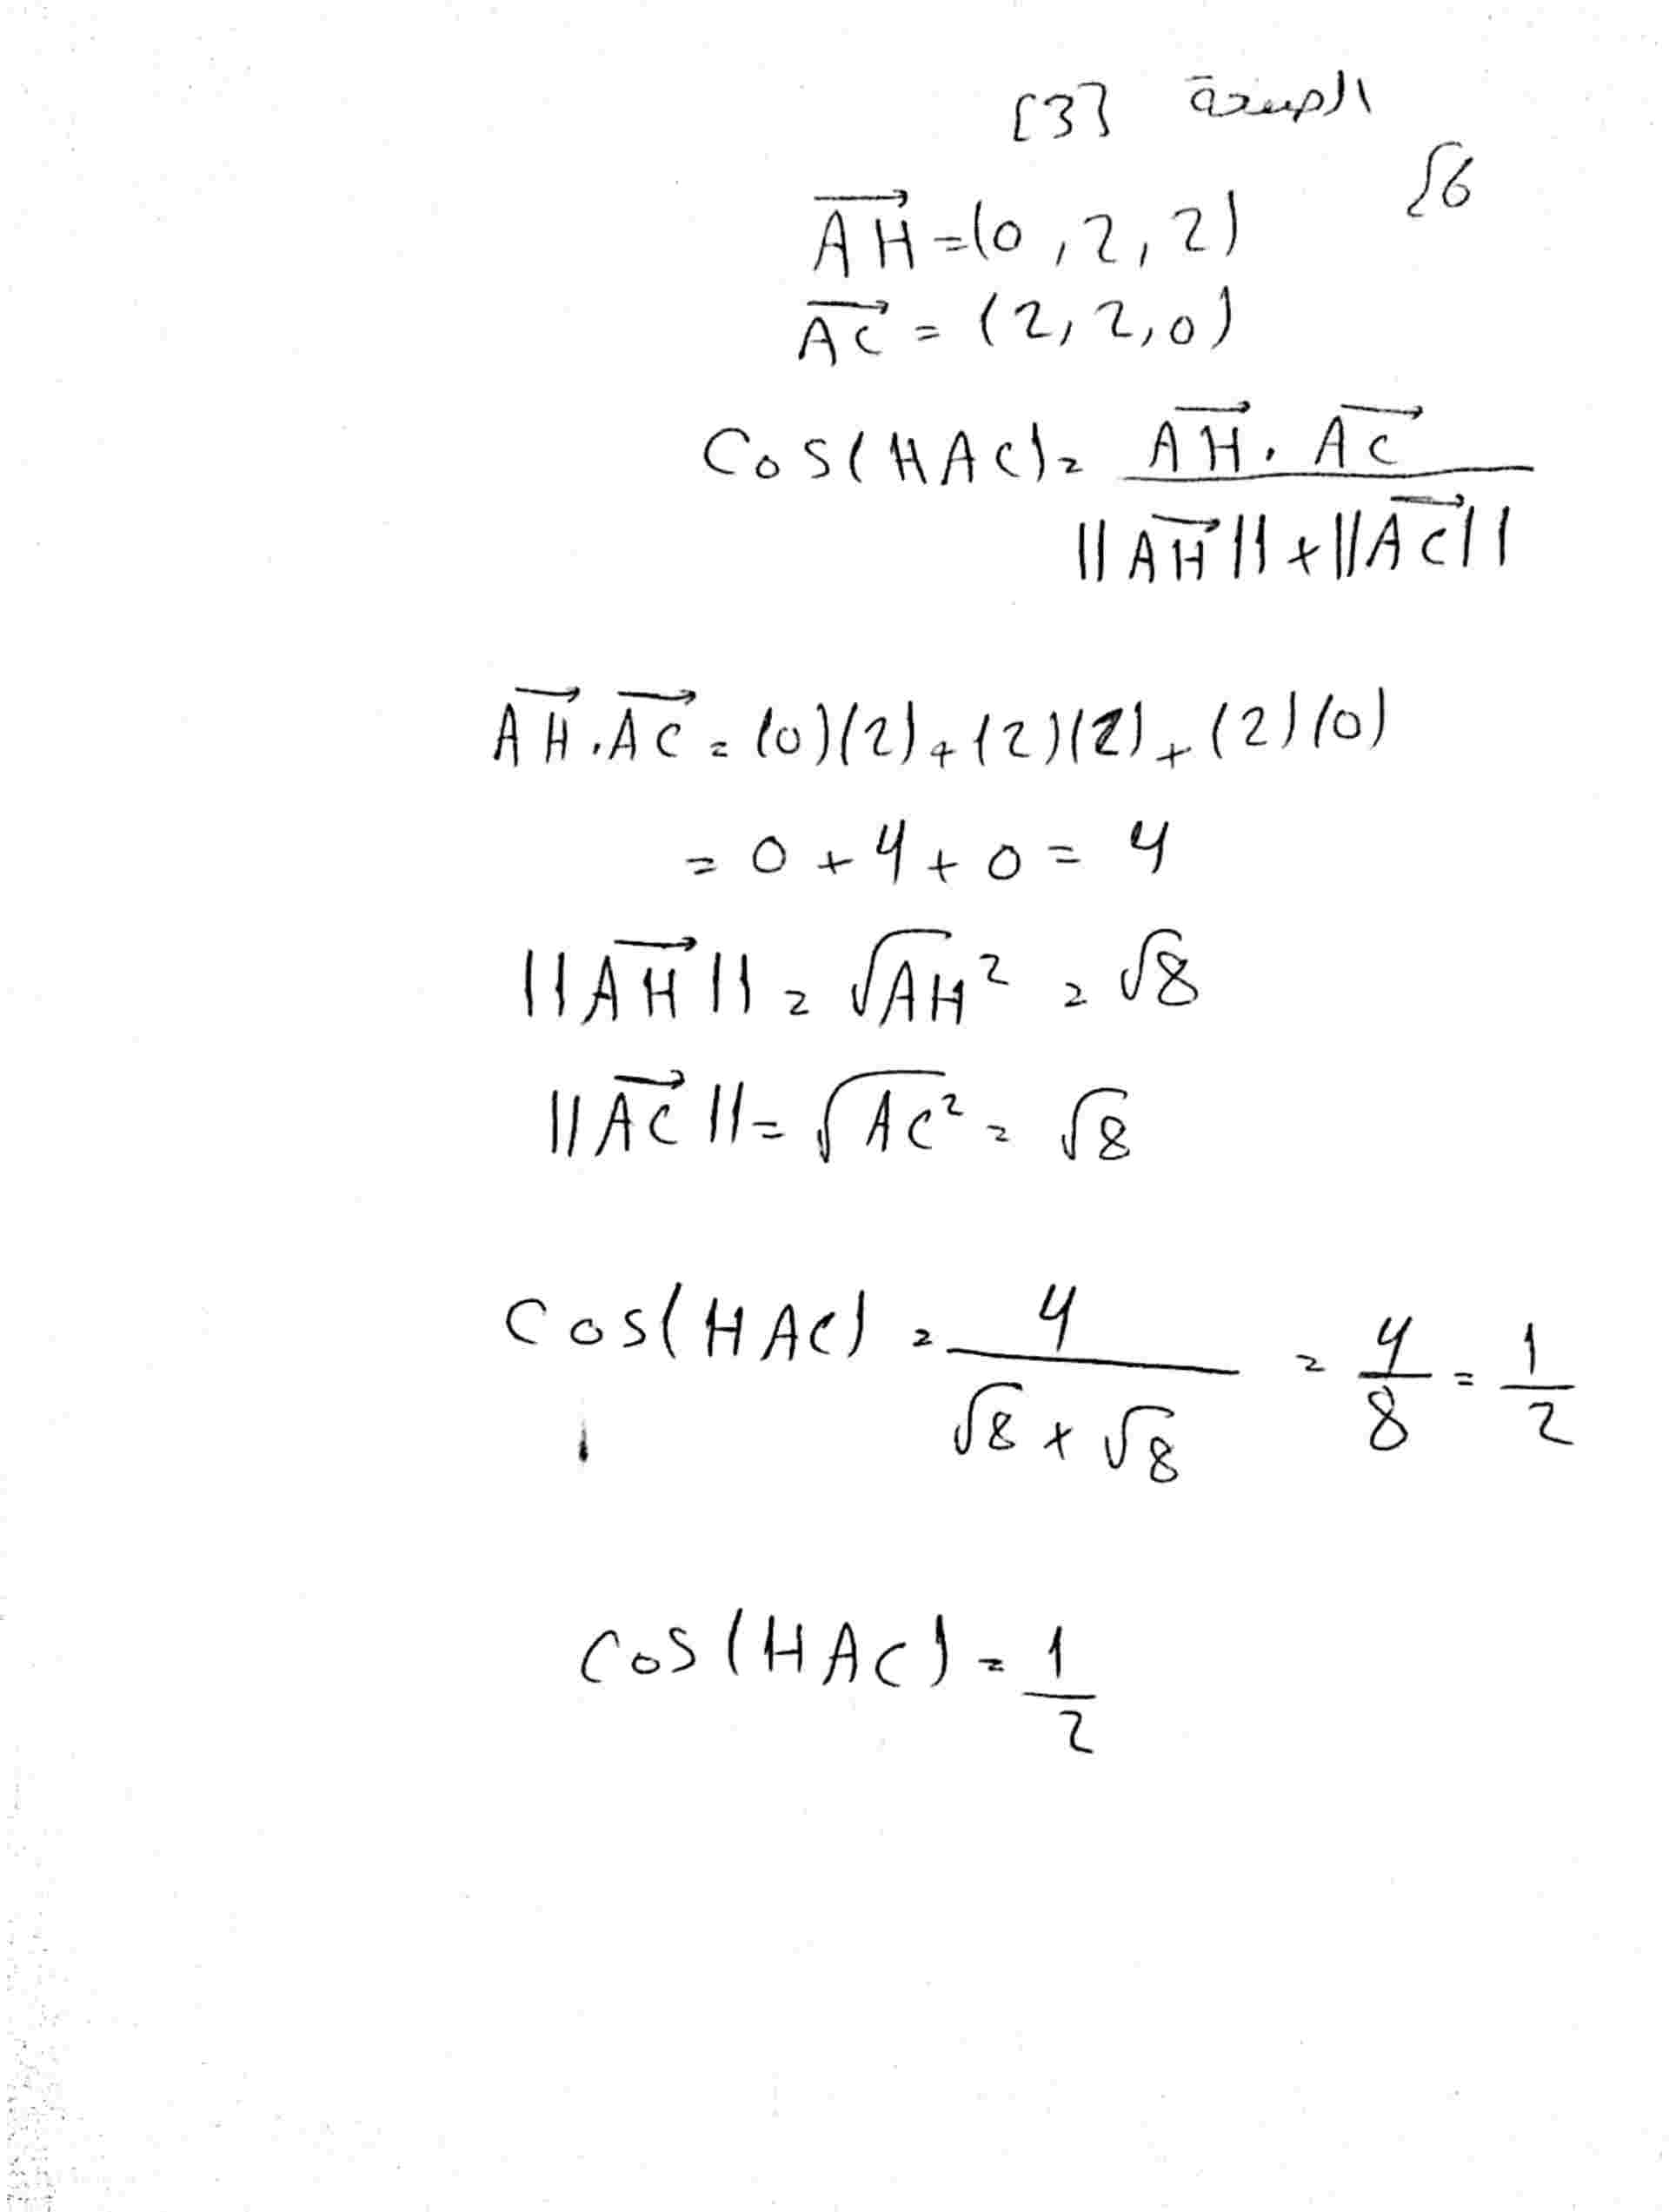 الصفحة [3]
√6
AH = (0, 2, 2)
AC = (2, 2, 0)
Cos(HAC) = AH . AC / ||AH|| × ||AC||
AH . AC = (0)(2) + (2)(2) + (2)(0)
= 0 + 4 + 0 = 4
||AH|| = √AH² = √8
||AC|| = √AC² = √8
Cos(HAC) = 4 / √8 × √8 = 4/8 = 1/2
Cos(HAC) = 1/2